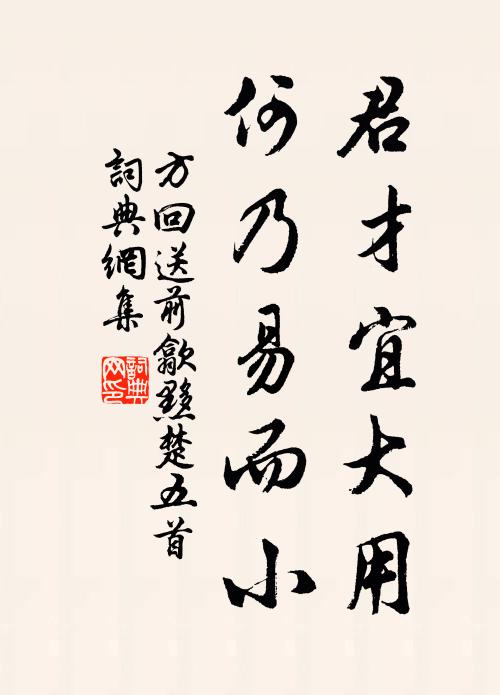 君才宜大用
何乃易而小
方回送前歙黟楚五首
詞典網集
詞典網印